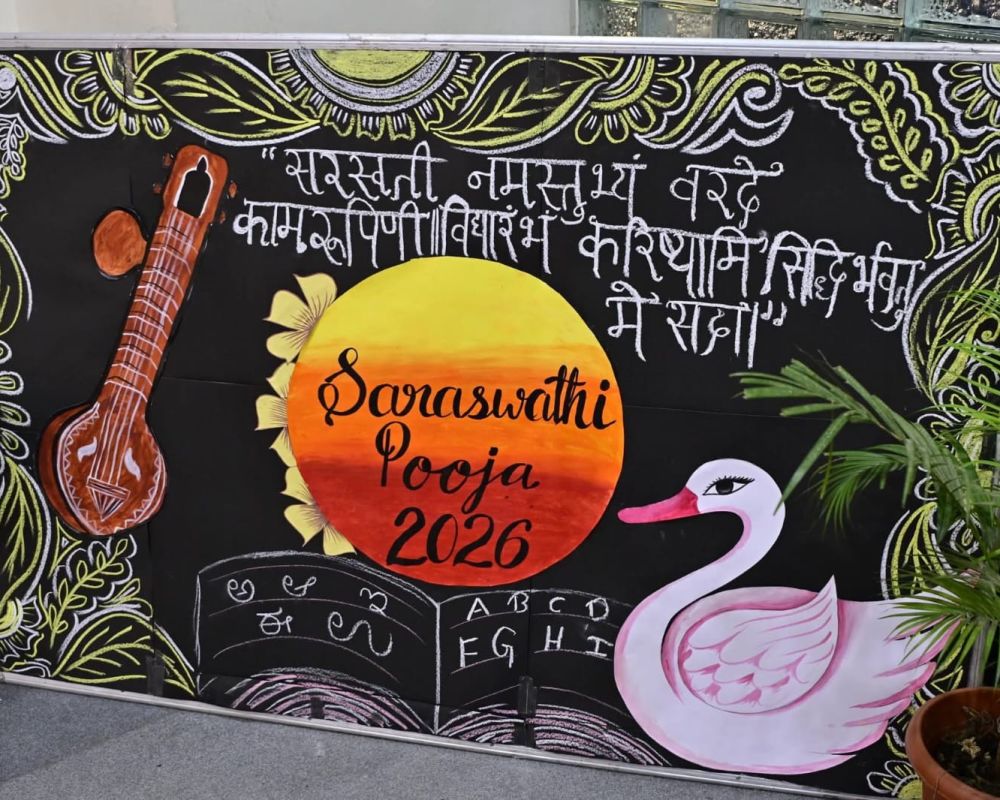 "सरस्वती नमस्तुभ्यं वरदे
कामरूपिणी॥विद्यारंभं करिष्यामि।सिद्धिर्भवतु
मे सदा।"
Saraswathi
Pooja
2026
ಅ ಆ ಇ
ಈ ಉ
A B C D
F G H I